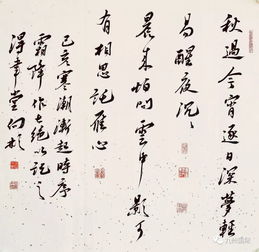 秋過今宵逐日深夢輕
易醒夜沉沉
晨來怕問雲中影可
有相思託雁心
己亥寒潮漸起時序
霜降作七絕以記之
得幸堂